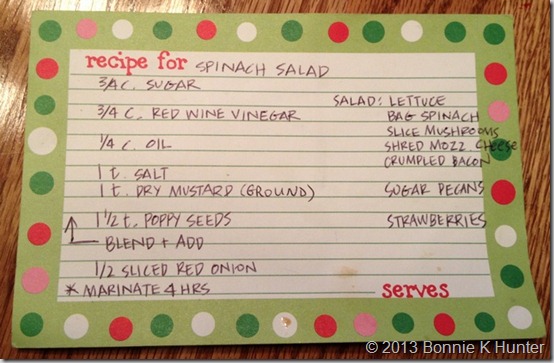 recipe for SPINACH SALAD
3/4 C. SUGAR
3/4 C. RED WINE VINEGAR
1/4 C. OIL
1 t. SALT
1 t. DRY MUSTARD (GROUND)
1 1/2 t. POPPY SEEDS
BLEND + ADD
1/2 SLICED RED ONION
* MARINATE 4 HRS
SALAD: LETTUCE
BAG SPINACH
SLICE MUSHROOMS
SHRED MOZZ CHEESE
CRUMPLED BACON
SUGAR PECANS
STRAWBERRIES
serves
© 2013 Bonnie K Hunter